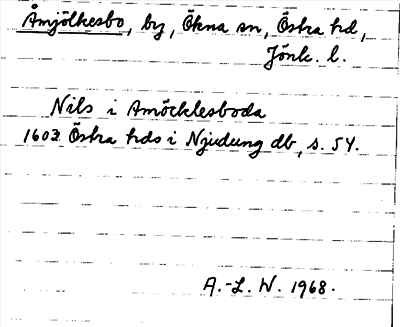 Åmjölkesbo, by, Ökna sn, Östra hd,
Jönk. l.
Nils i Amöcklesboda
1602 Östra hds i Njudung db, s. 54.
A.-L. W. 1968.